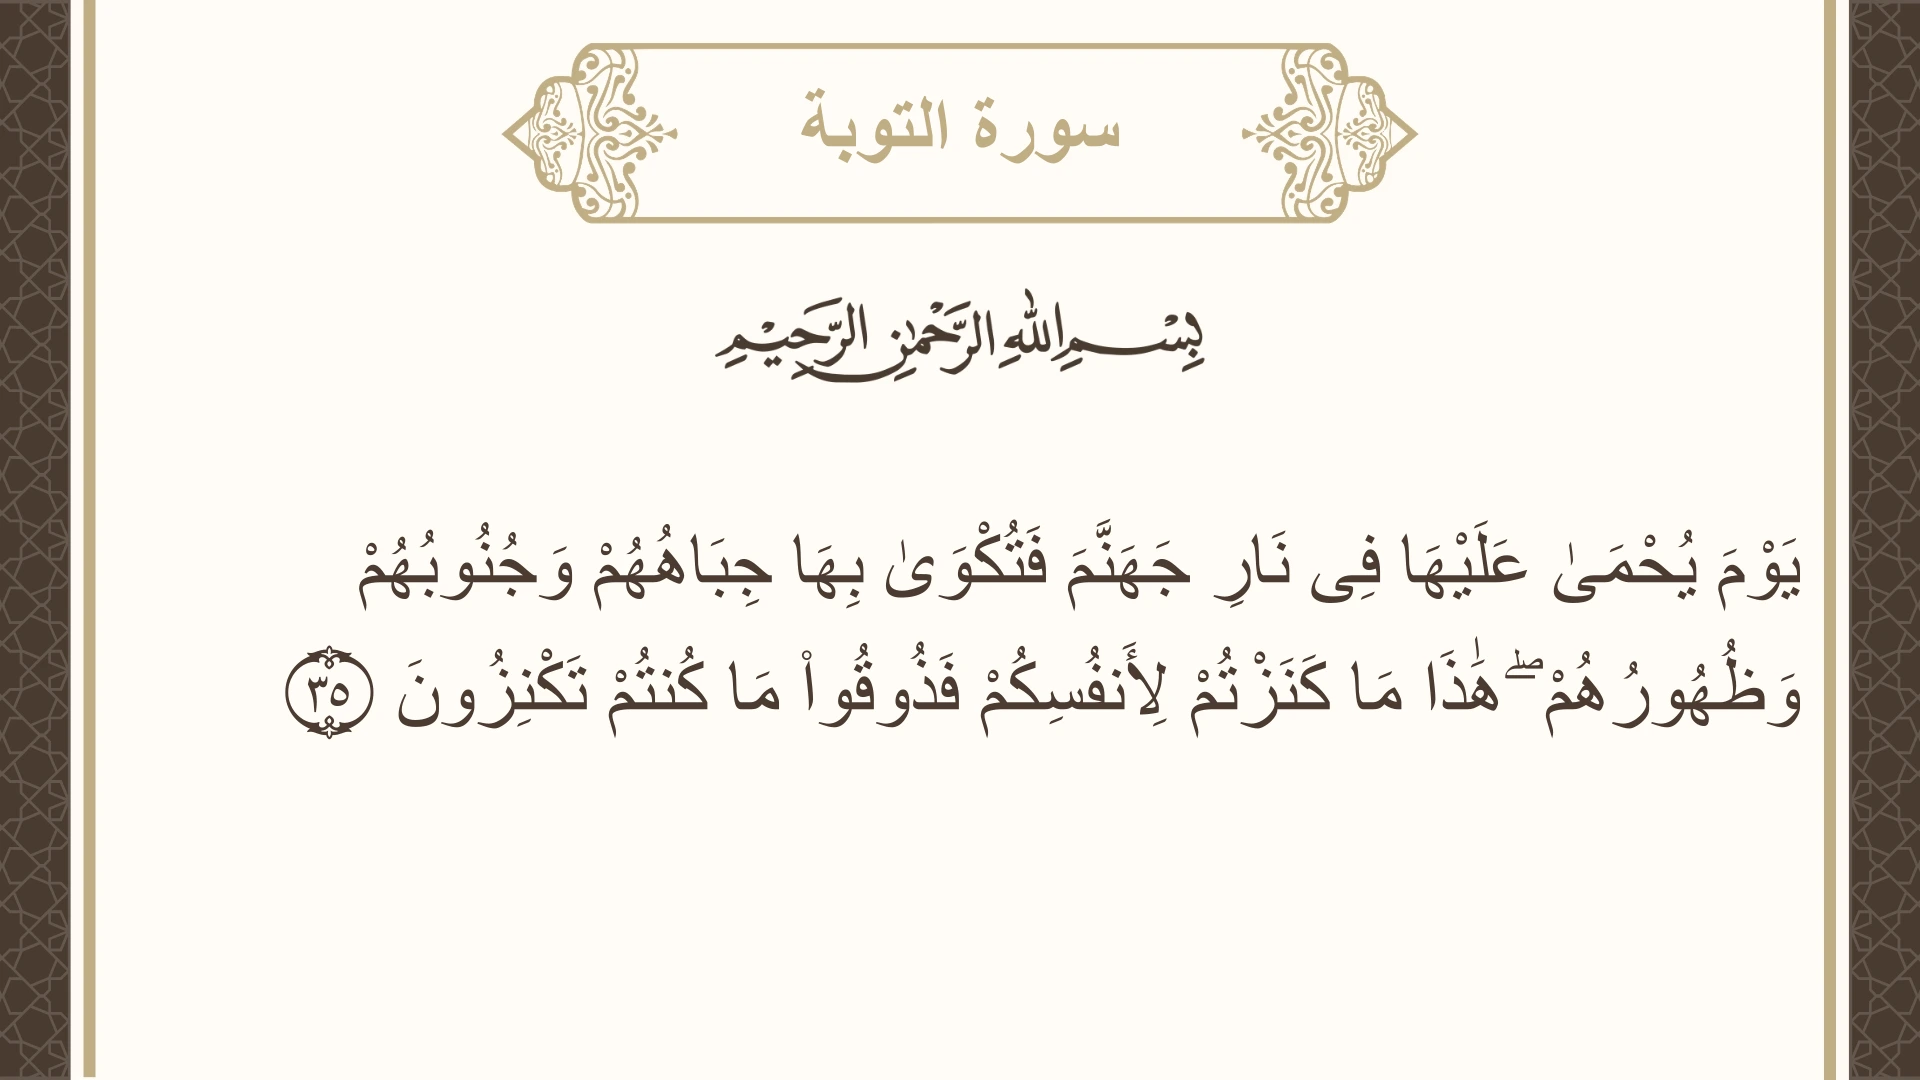 سورة التوبة
بِسْمِ اللهِ الرَّحْمٰنِ الرَّحِيْمِ
يَوْمَ يُحْمَىٰ عَلَيْهَا فِى نَارِ جَهَنَّمَ فَتُكْوَىٰ بِهَا جِبَاهُهُمْ وَجُنُوبُهُمْ
وَظُهُورُهُمْ ۖ هَٰذَا مَا كَنَزْتُمْ لِأَنفُسِكُمْ فَذُوقُوا۟ مَا كُنتُمْ تَكْنِزُونَ ٣٥